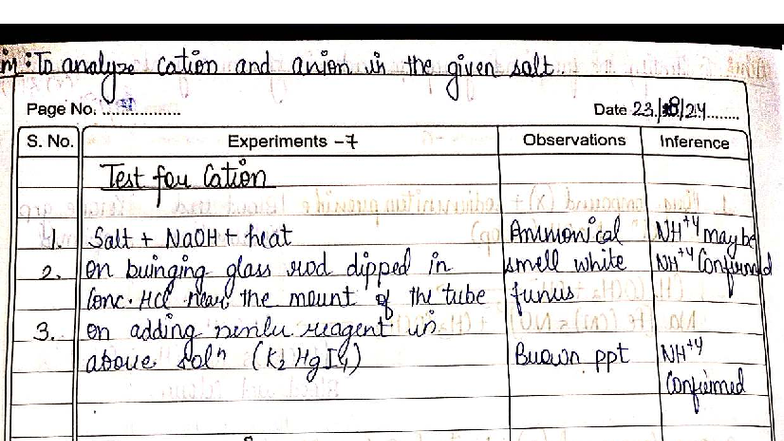 m: To analyze cation and anion in the given salt.
Page No. ................. Date 23/8/24........
S. No. Experiments -7 Observations Inference
Test for Cation
1. Salt + NaOH + heat Ammonical NH+4 may be
2. on buinging glass rod dipped in smell white NH+4 Confirmed
Conc. HCl near the mount of the tube fumus
3. on adding nenlu reagent in
above solⁿ (K2 HgI4) Buown ppt NH+4
Confirmed